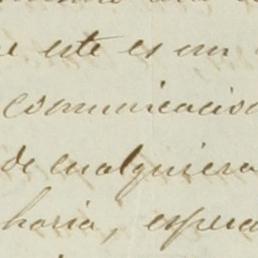 este es un
comunicacio
de cualquiera
haria, espera